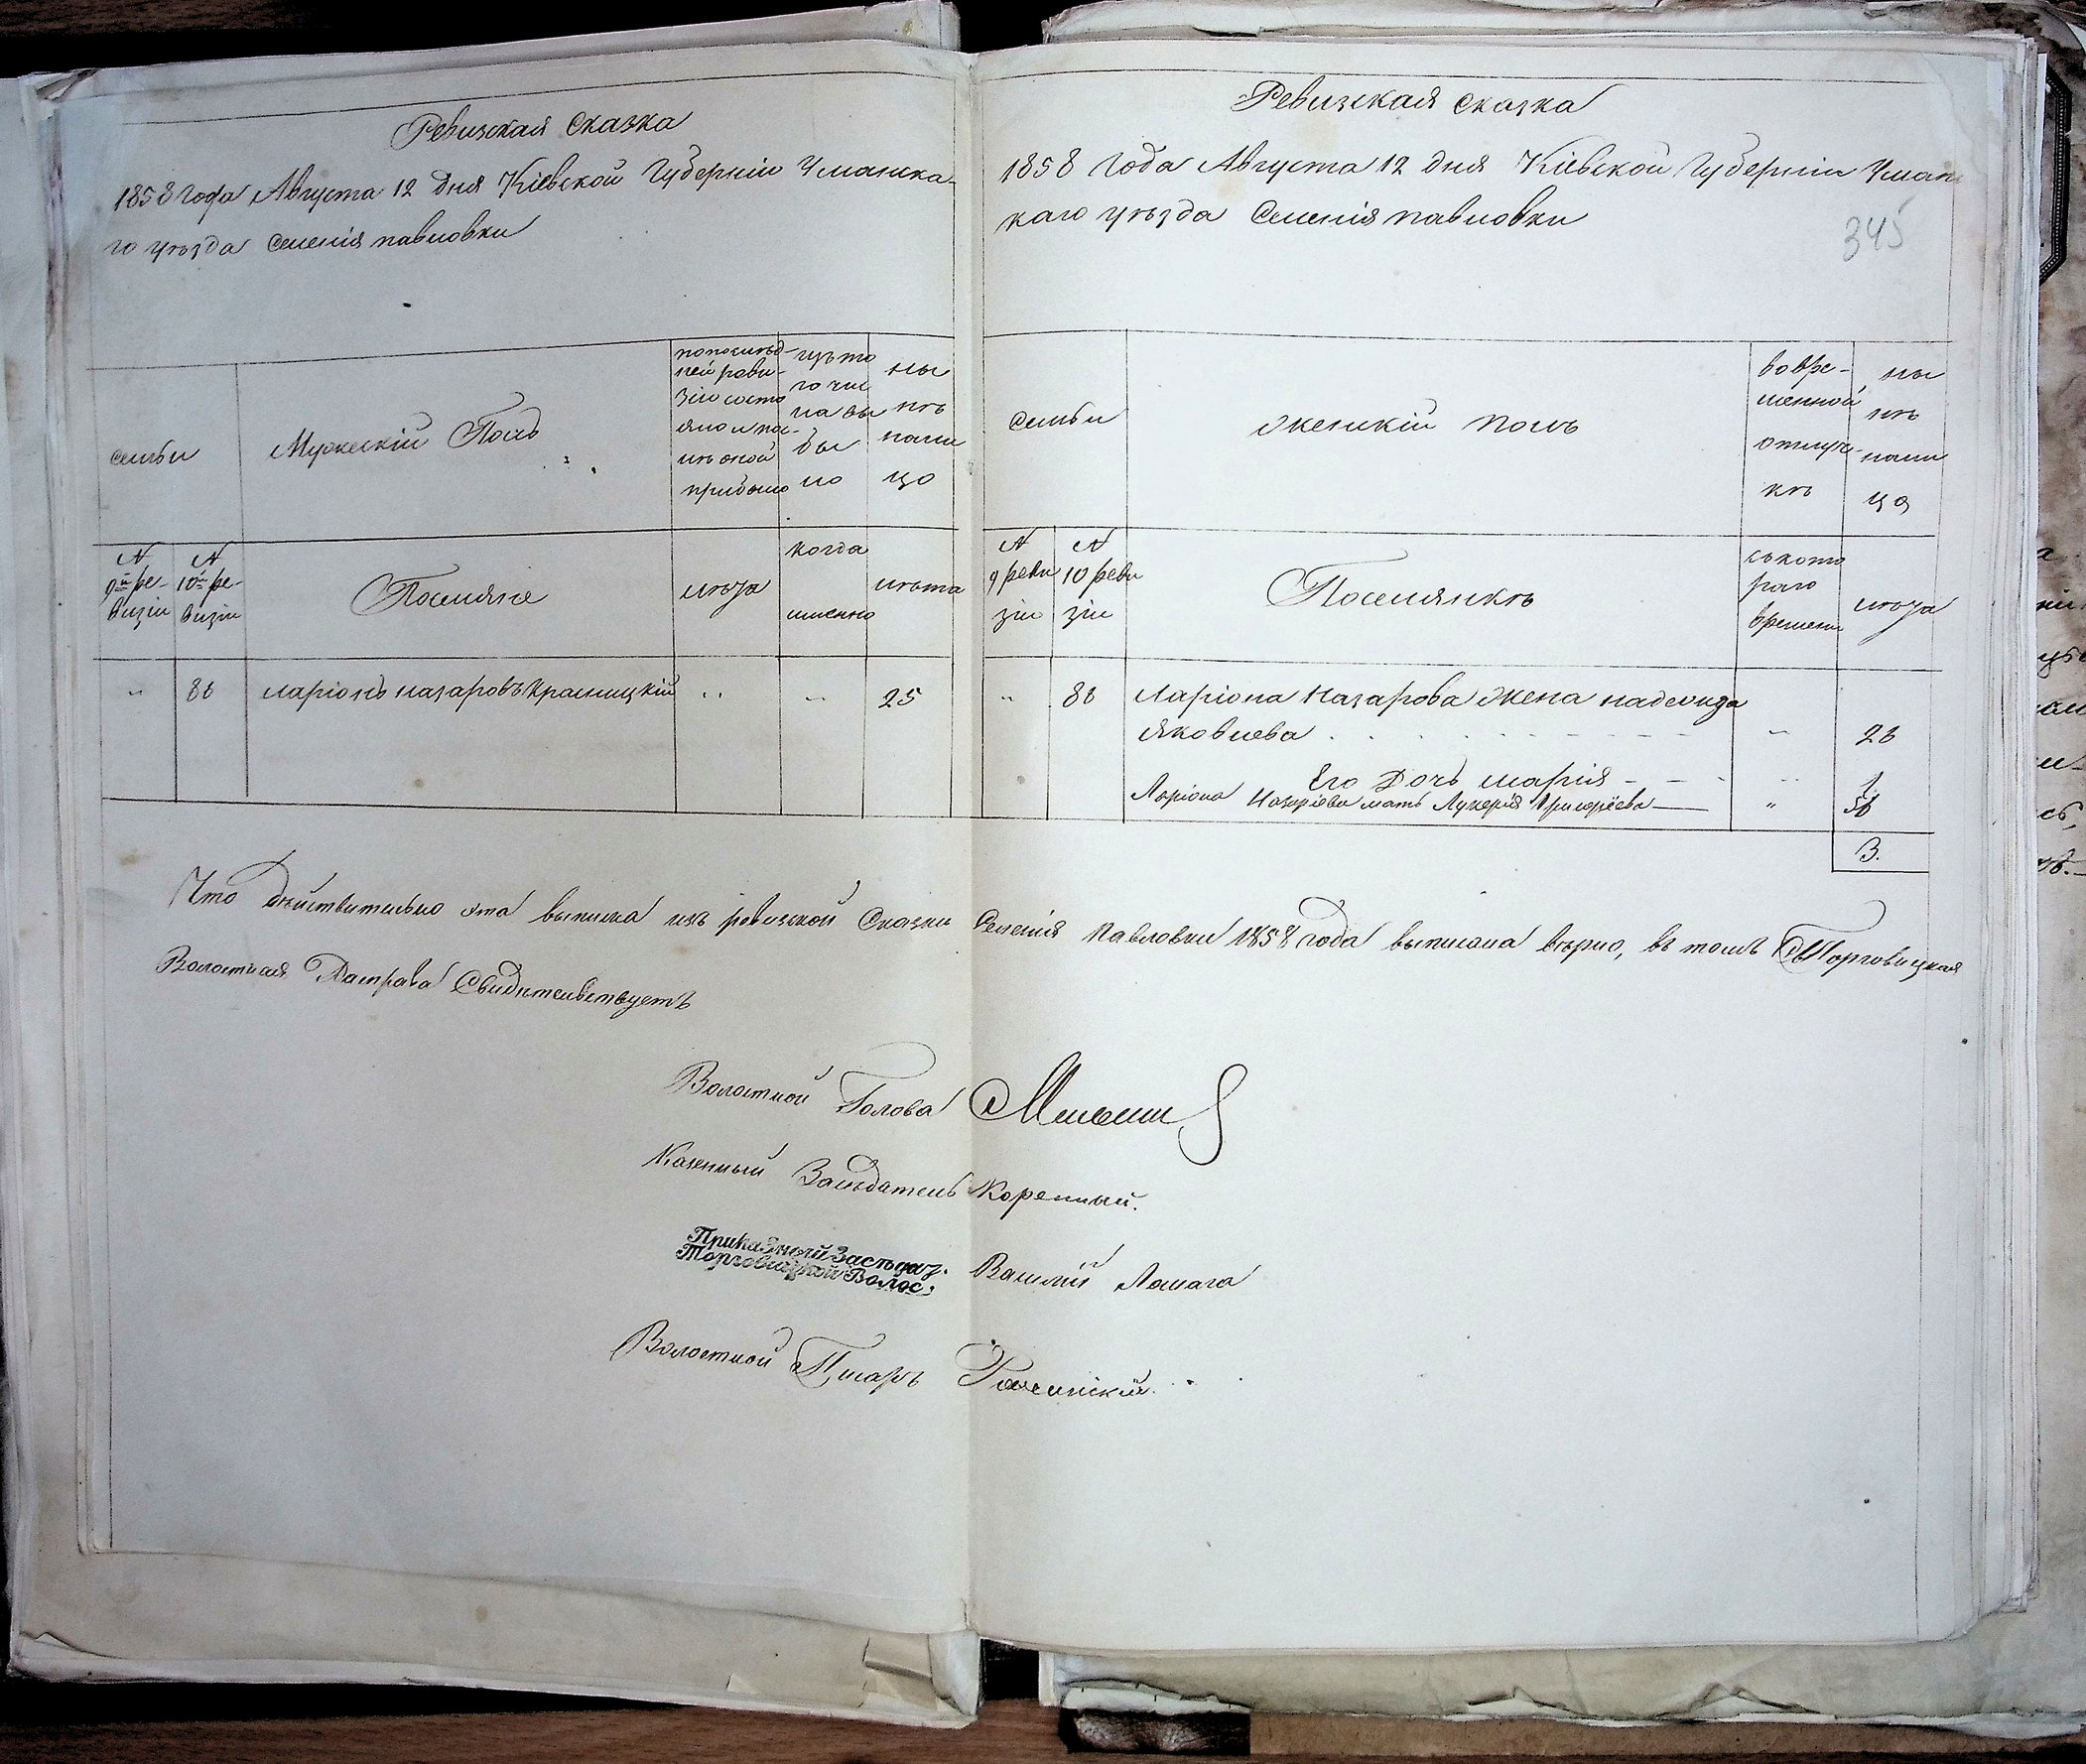 Ревизская Сказка
1858 года Августа 12 дня Кіевской Губерніи Уманска-
го уѣзда Селенія павловки
семьи
Мужескій Полъ
по послѣд-
ней реви-
зіи состо
яло и по-
слѣ оной
прибыло
изъ то
го чис
ла вы
бы
ло
ны
нѣ
нали
цо
N
9й ре-
визіи
N
10й ре-
визіи
Поселяне
лѣта
когда
именно
лѣта
" 86 Ларіонъ назаровъ Красницкій " " 25
Ревизская сказка
1858 года Августа 12 дня Кіевской Губерніи Уман
каго уѣзда Селенія павловки
345
Семьи
Женскій полъ
во вре-
менной
отлуч-
кѣ
ны
нѣ
нали
цо
N
9 реви
зіи
N
10 реви
зіи
Поселянкѣ
съ кото
раго
времени
лѣта
" 86 Ларіона Назарова Жена надежда
Яковлева " 26
Его Дочь марія " 1
Ларіона Назаріева мать Лукерія Григоріева " 56
3.
Что дѣйствительно эта выписка изъ ревизской Сказки Селенія Павловки 1858 года выписана вѣрно, въ томъ Торговицкая
Волостная Расправа Свидѣтельствуетъ
Волостной Голова
Казенный Засѣдатель Коренный.
Приказный Засѣдат.
Торговицкой Волос.
Василій Ломага
Волостной Писарь